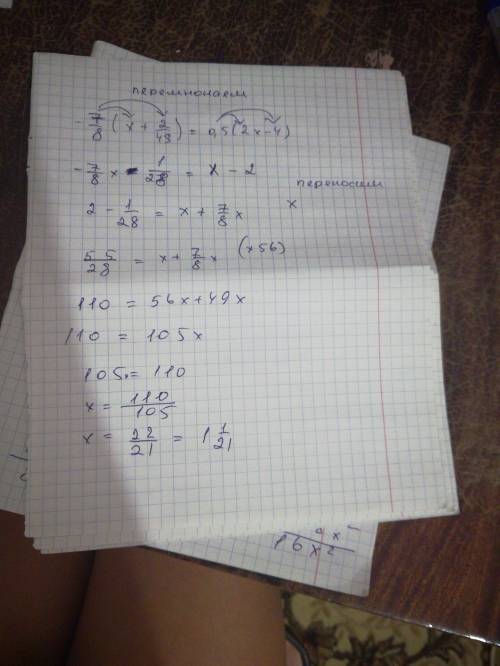 перемножаем
-7/8 (x + 2/49) = 0,5(2x-4)
-7/8 x - 1/28 = x - 2
переносим
x
2 - 1/28 = x + 7/8 x
55/28 = x + 7/8 x (x56)
110 = 56x+49x
110 = 105x
105x = 110
x = 110/105
x = 22/21 = 1 1/21
16x²